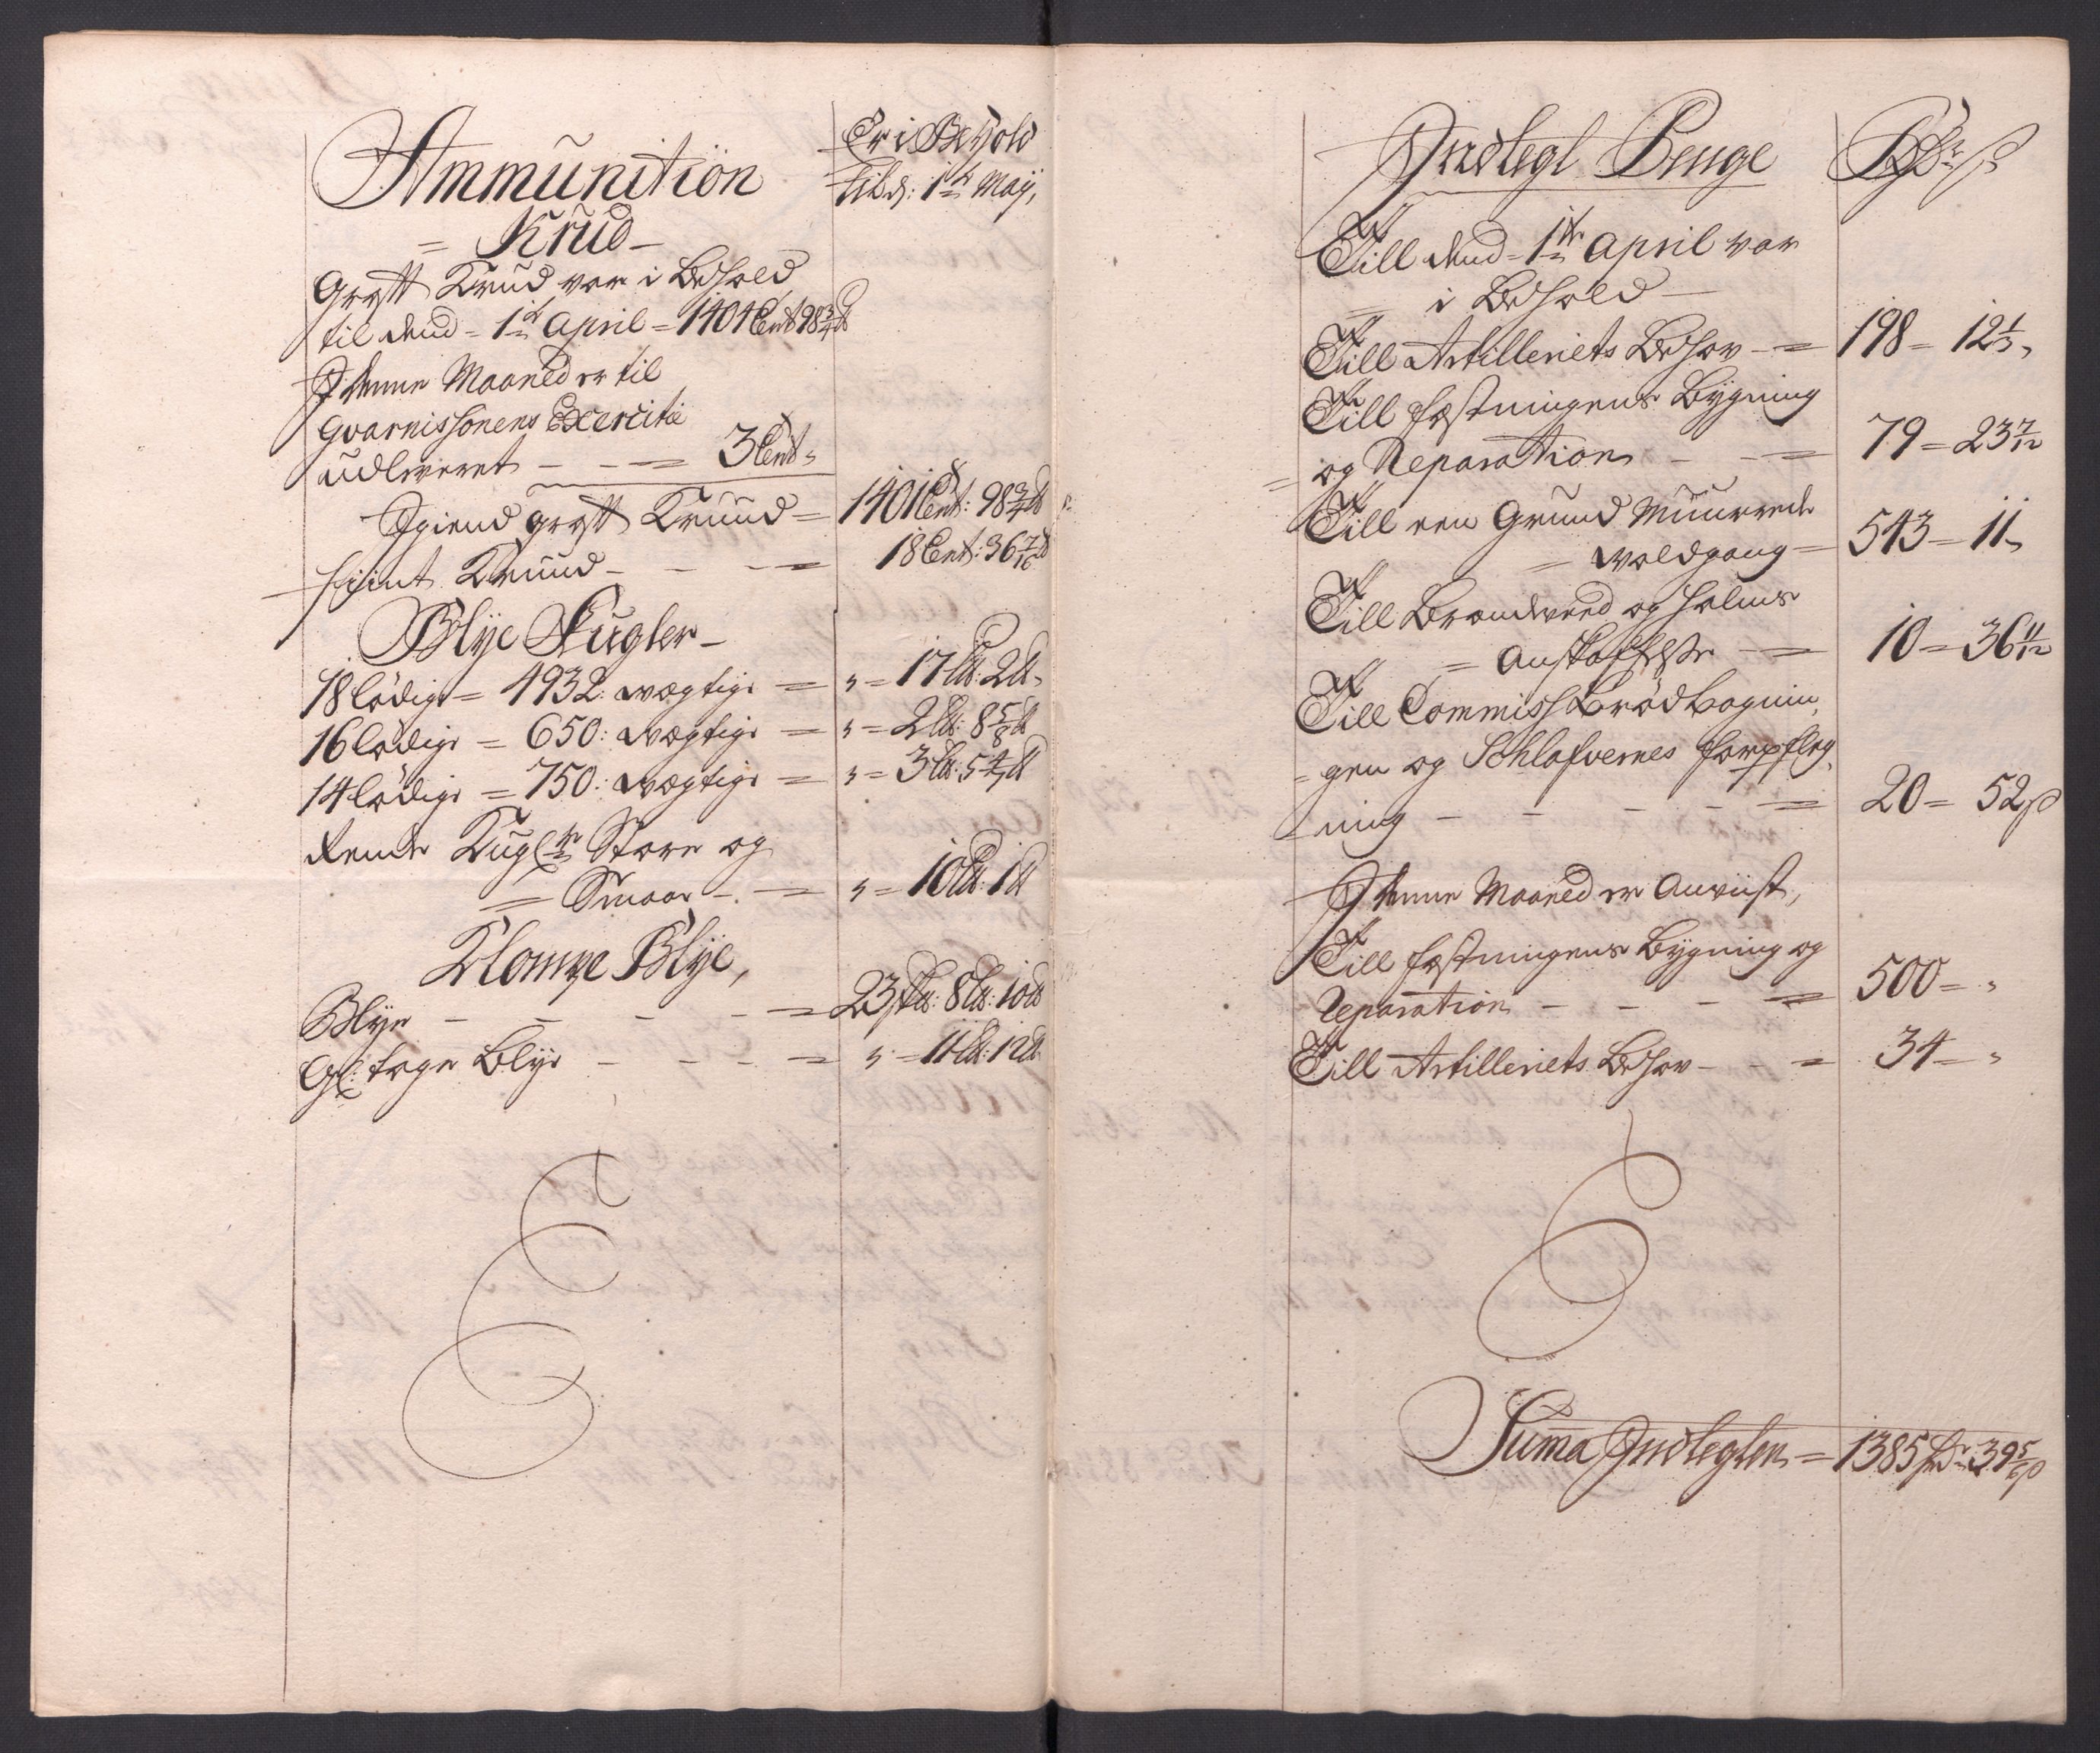 Ammunition
Er i Behold
til d: 1te Maÿ,
= Krud -
Groft Krud var i Behold
til dend = 1te April = 1404 Cent 98 3/4 ℔
I denne Maaned er til
Gvarnissonens Exercitie
udleveret - - - = 3 Cent:
Igiend groft Kruud = 1401 Cent: 98 3/4 ℔
fiint Kruud - - - = 18 Cent: 36 7/16 ℔
Blÿe Kugler -
18 lödige = 4932: wægtige = " = 17 L℔: 2 ℔
16 lödige = 650: wægtige = " = 2 L℔: 8 5/8 ℔
14 lödige = 750: wægtige = " = 3 L℔: 5 4/7 ℔
Rende Kugler Store og
= Smaae - = " = 10 L℔: 1 ℔
Klompe Blÿe,
Blÿe - - - - = 23 Sk℔: 8 L℔: 10 ℔
Gl: tage Blÿe - - - = " = 11 L℔: 12 ℔
Indlegt Penge Rdr ß
Till dend = 1te April var
= i Behold -
Till Artilleriets Behov - = 198 = 12 1/3 "
Till Fæstningens Bÿgning
= og Reparation - - = 79 = 23 7/12
Till een Grund Muurede
= Woldgang = 543 = 11 "
Till Brændeved og halms
= Anskaffelse - = 10 = 36 11/12
Till Commiss Brød bagnin,
= gen og Schlafvernes forpfleg,
= ning - - - - = 20 = 52 ß
I denne Maaned er Anviist,
Till Fæstningens Bÿgning og
Reparation - - - = 500 = "
Till Artilleriets Behov - - = 34 = "
Suma Indlegten = 1385 Rdr 39 5/6 ß